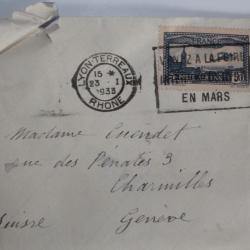 LYON-TERREAUX
15 *
23 - 1
1933
RHONE
A LA FOIRE
EN MARS
Madame
rue des Pénates 3
Charmilles
Suisse Genève